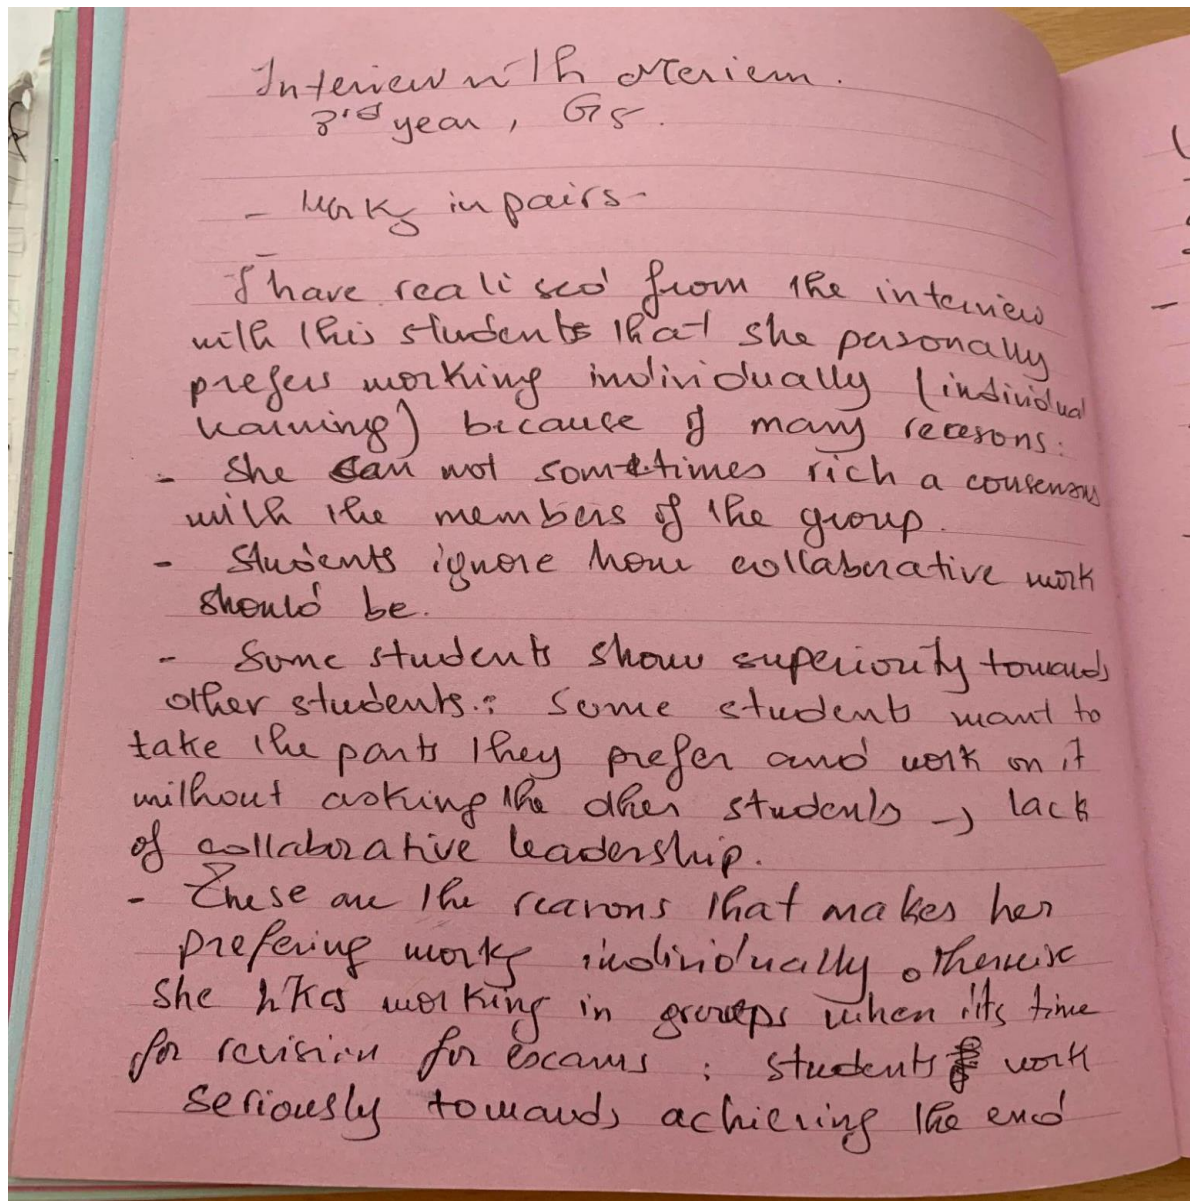 Interview with Meriem.
3rd year, G5.
- Work in pairs-
-
I have realised from the interview
with this students that she pesonally
prefers working individually (individual
learning) because of many reasons:
- She can not sometimes rich a consensus
with the members of the group.
- Students ignore how collaborative work
should be.
- Some students show superiority towards
other students.: Some students want to
take the parts they prefer and work on it
without asking the other students → lack
of collaborative leadership.
- These are the reasons that makes her
prefering work individually otherwise
she likes working in groups when it's time
for revision for exams : students work
seriously towards achieving the end